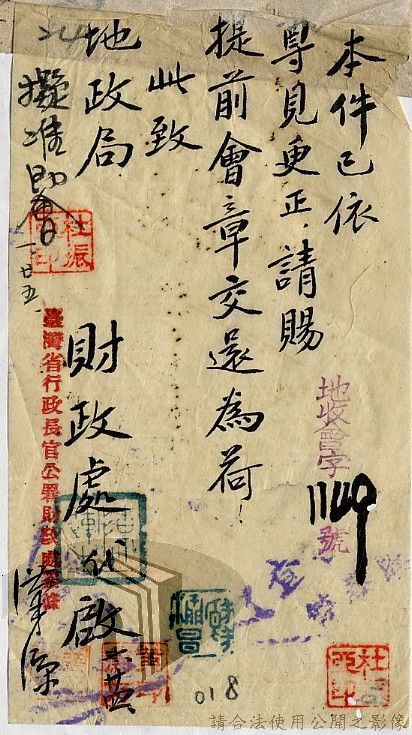 本件已依
尊見更正，請賜
提前會章交還為荷！
此致
地政局
財政處代啟
擬准即會
一廿五
臺灣省行政長官公署財政處用箋
地收會字
1149
號
018
請合法使用公開之影像